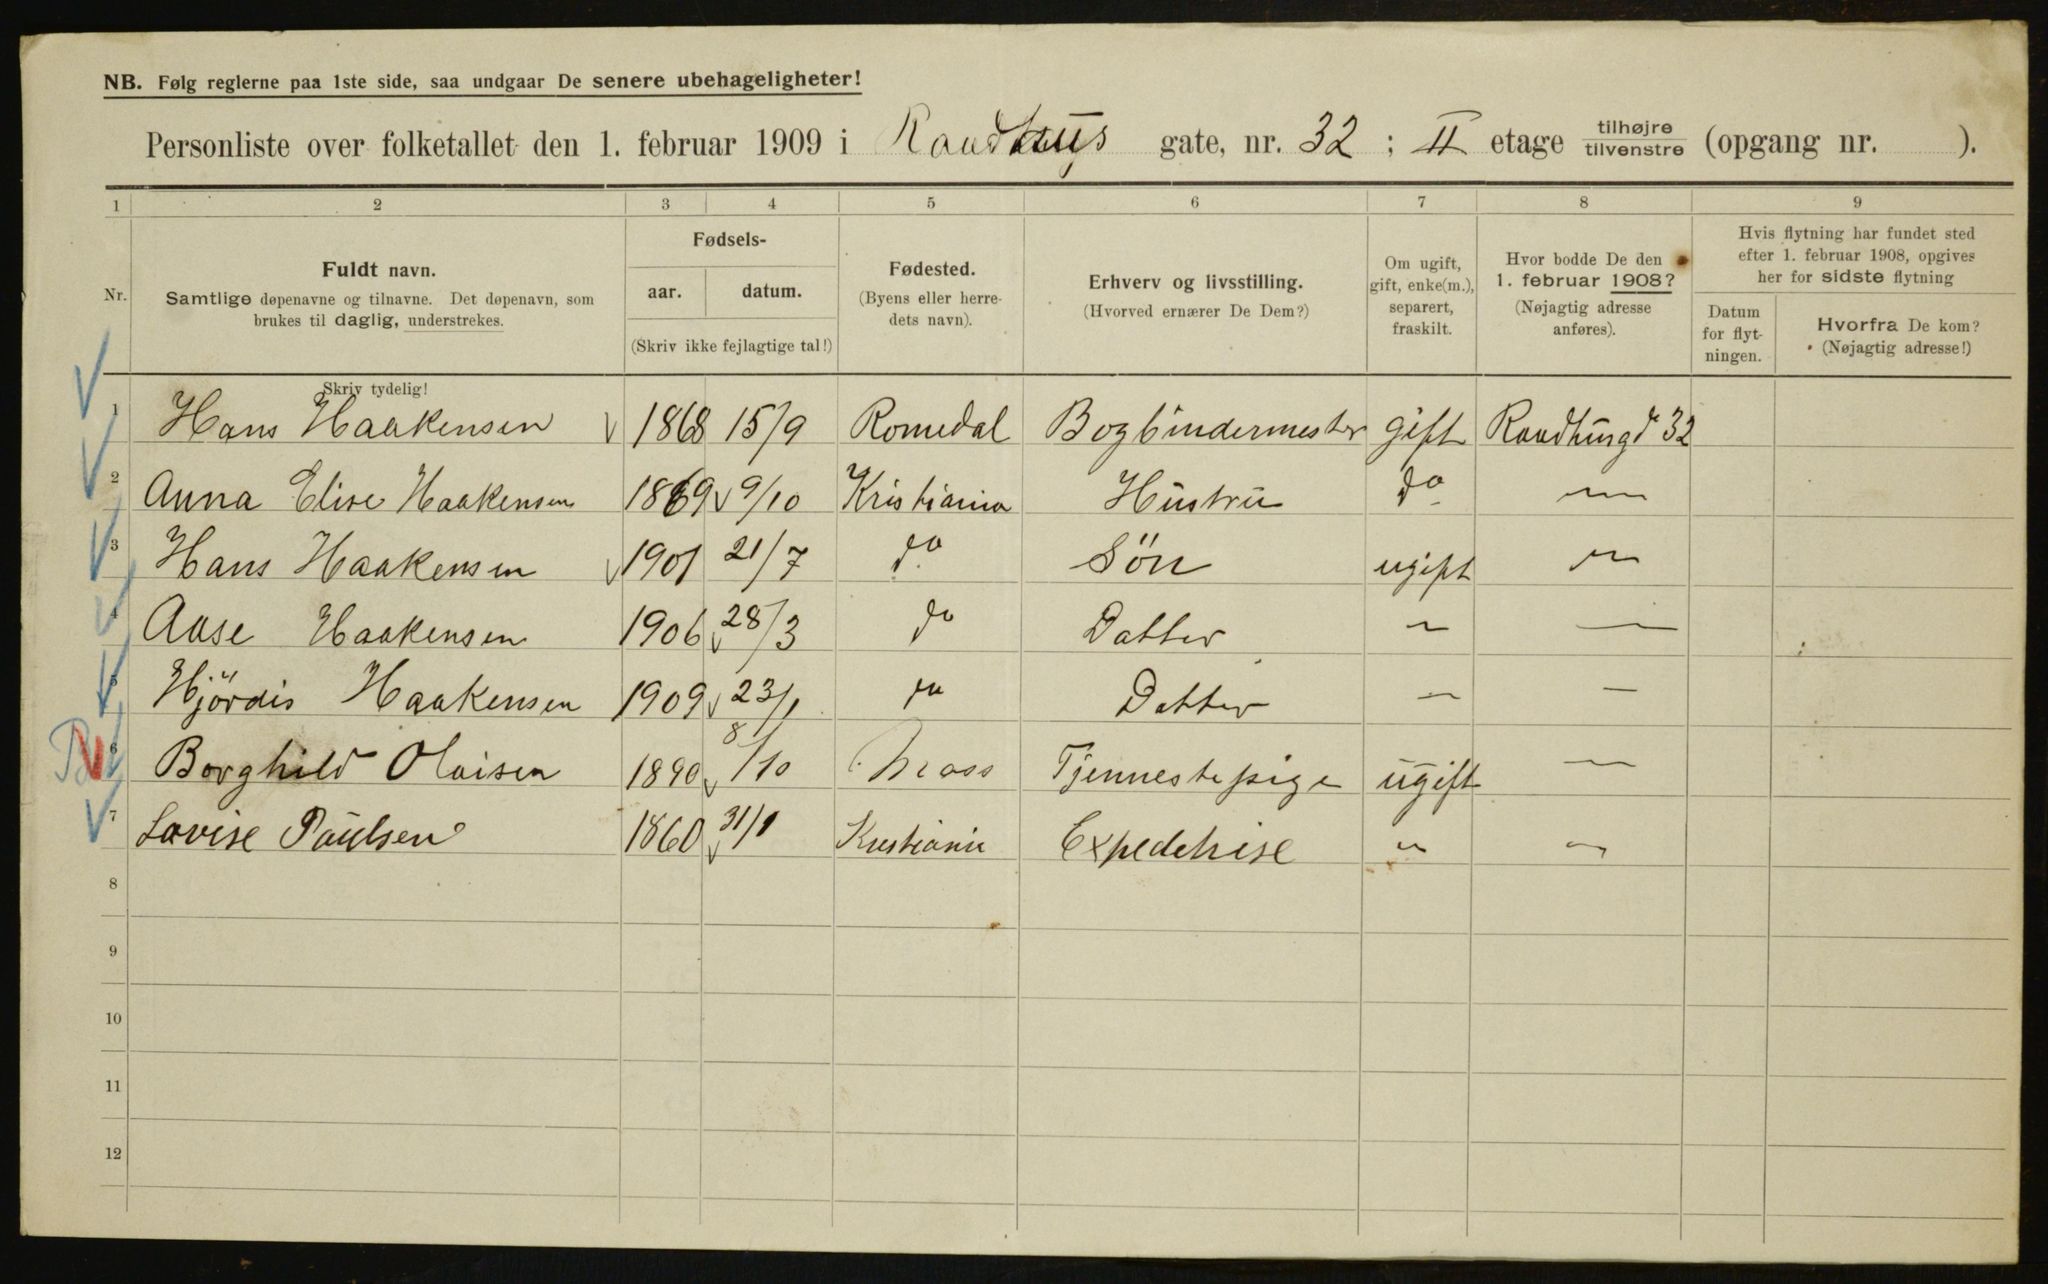 NB. Følg reglerne paa 1ste side, saa undgaar De senere ubehageligheter!
Personliste over folketallet den 1. februar 1909 i Raadhus gate, nr. 32 ; II etage tilhøjre tilvenstre (opgang nr. ).
1 2 3 4 5 6 7 8 9
Nr.
Fuldt navn.
Samtlige døpenavne og tilnavne. Det døpenavn, som
brukes til daglig, understrekes.
Fødsels-
aar. datum.
(Skriv ikke fejlagtige tal!)
Fødested.
(Byens eller herre-
dets navn).
Erhverv og livsstilling.
(Hvorved ernærer De Dem?)
Om ugift,
gift, enke(m.),
separert,
fraskilt.
Hvor bodde De den
1. februar 1908?
(Nøjagtig adresse
anføres).
Hvis flytning har fundet sted
efter 1. februar 1908, opgives
her for sidste flytning
Datum
for flyt-
ningen.
Hvorfra De kom?
(Nøjagtig adresse!)
Skriv tydelig!
1 Hans Haakensen 1868 15/9 Romedal Bogbindermester gift Raadhusgd 32
2 Anna Elise Haakensen 1869 9/10 Kristiania Hustru do
3 Hans Haakensen 1901 21/7 do Sön ugift
4 Aase Haakensen 1906 28/3 do Datter
5 Hjördis Haakensen 1909 23/1 do Datter
6 Borghild Olaisen 1890 8/10 Moss Tjennestepige ugift
7 Lovise Paulsen 1860 31/1 Kristiania Expeditrise
8
9
10
11
12